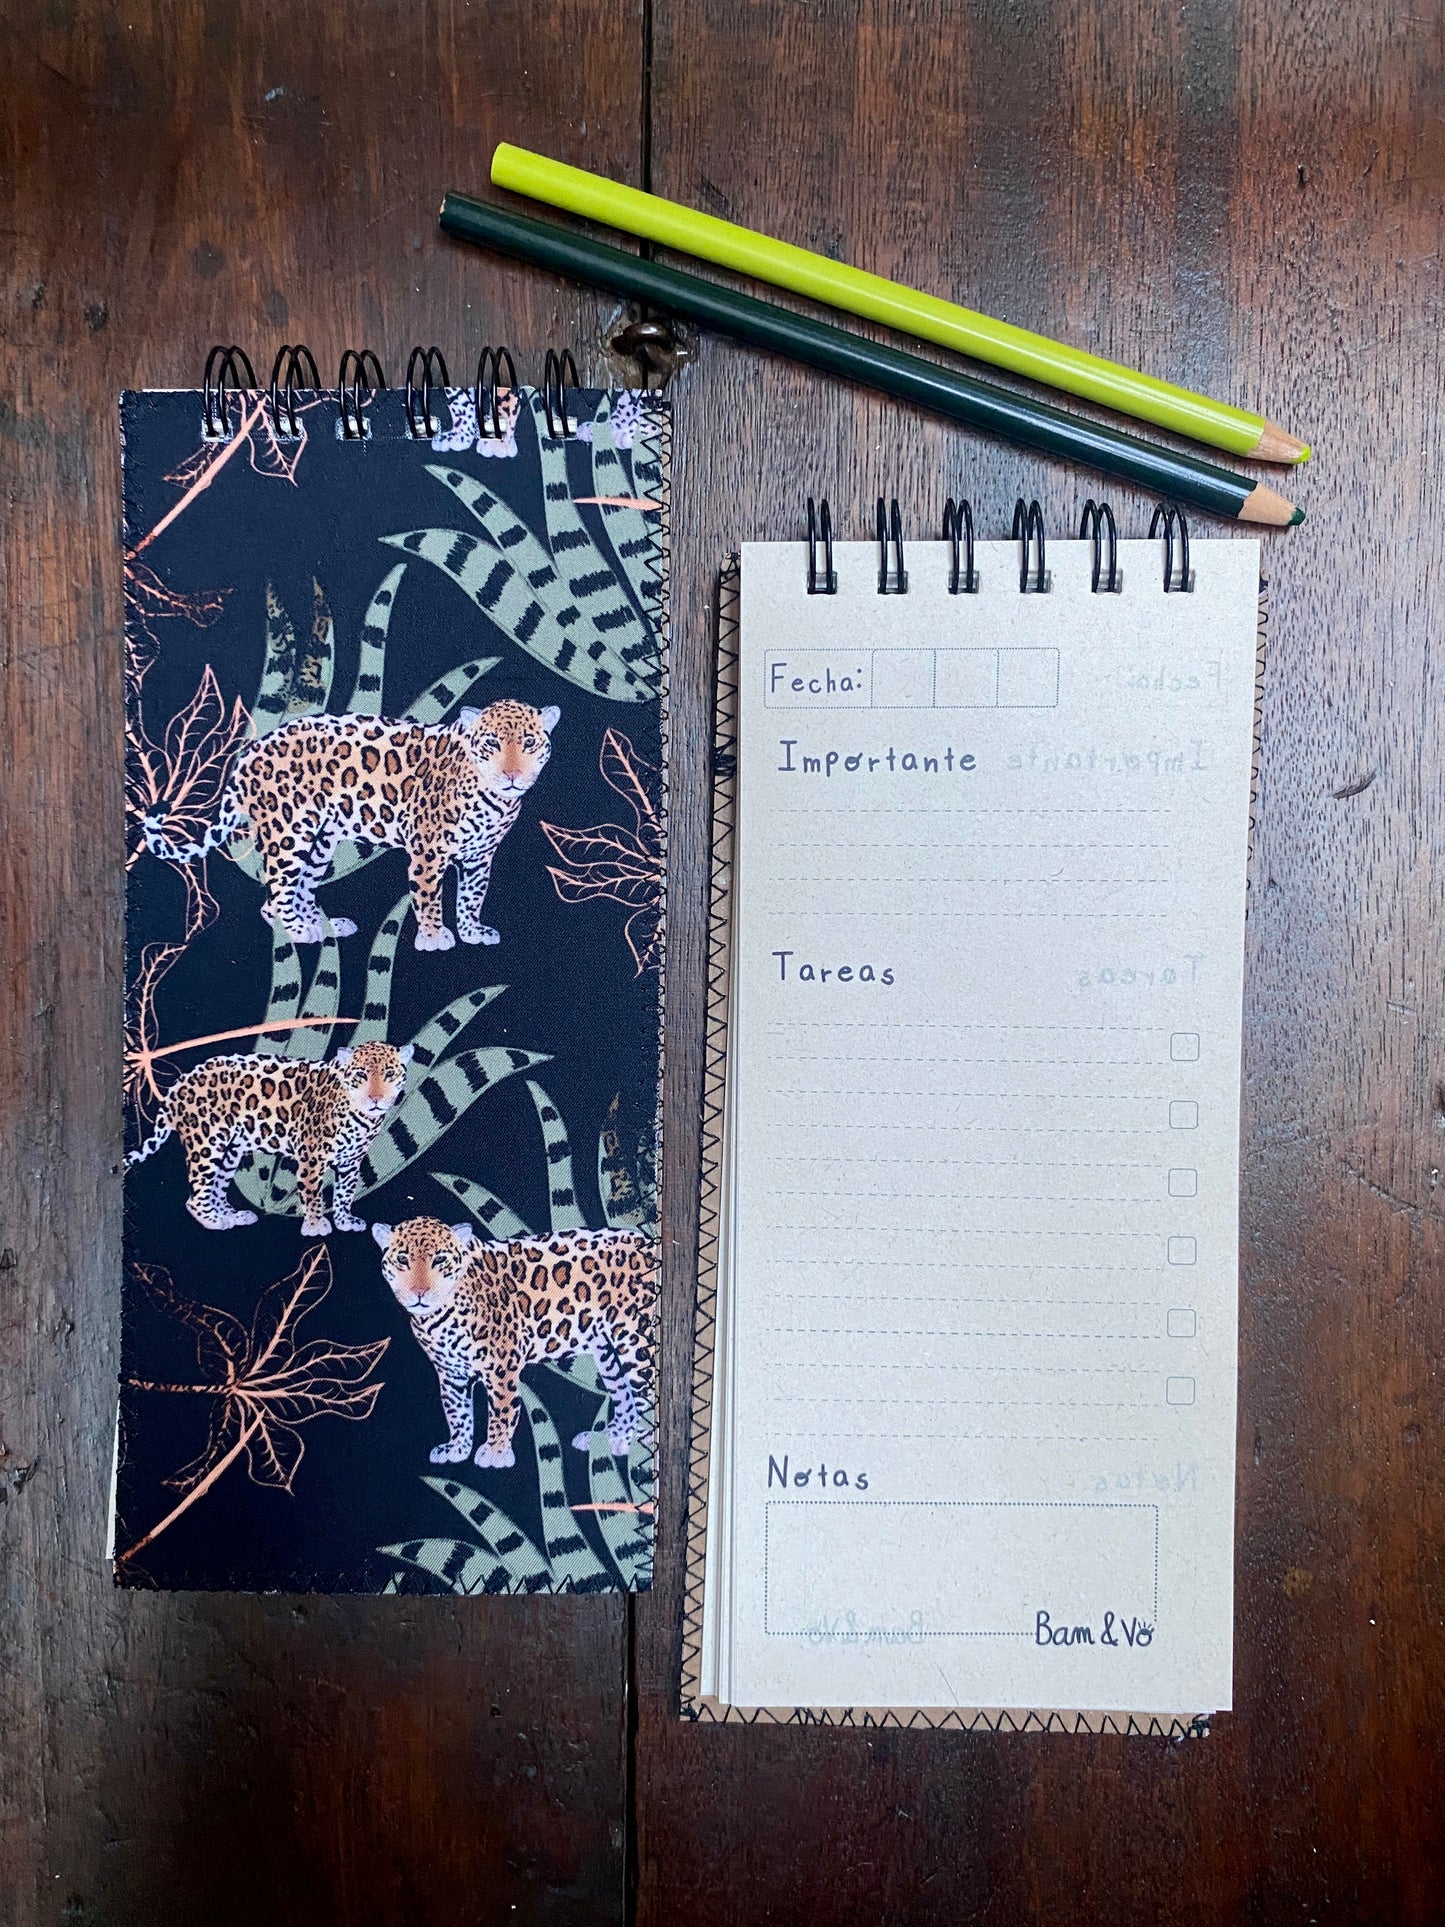 Fecha:
Importante
Tareas
Notas
Bam & Vo